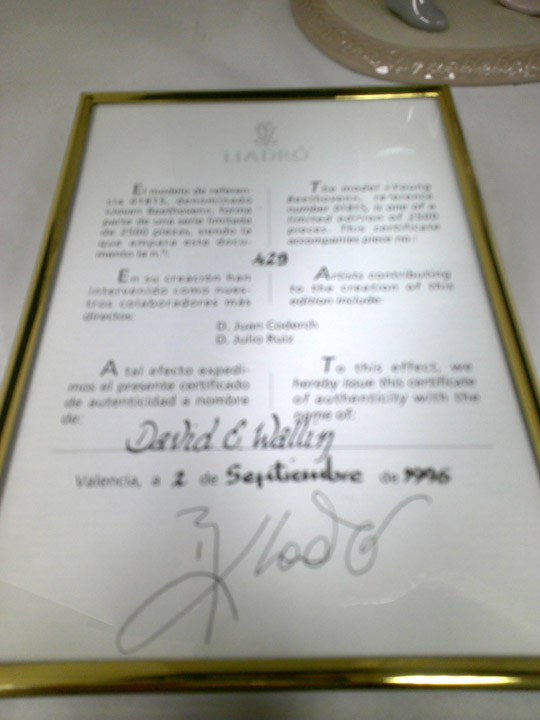 LLADRÓ
El modelo de referen-
cia 01815, denominado
«Joven Beethoven», forma
parte de una serie limitada
de 2500 piezas, siendo la
que ampara este docu-
mento la n.º:
The model «Young
Beethoven», reference
number 01815, is one of a
limited edition of 2500
pieces. This certificate
accompanies piece no.:
429
En su creación han
intervenido como nues-
tros colaboradores más
directos:
Artists contributing
to the creation of this
edition include:
D. Juan Coderch
D. Julio Ruiz
A tal efecto expedi-
mos el presente certificado
de autenticidad a nombre
de:
To this effect, we
hereby issue this certificate
of authenticity with the
name of:
David E. Wallin
Valencia, a 2 de Septiembre de 1996
Lladró